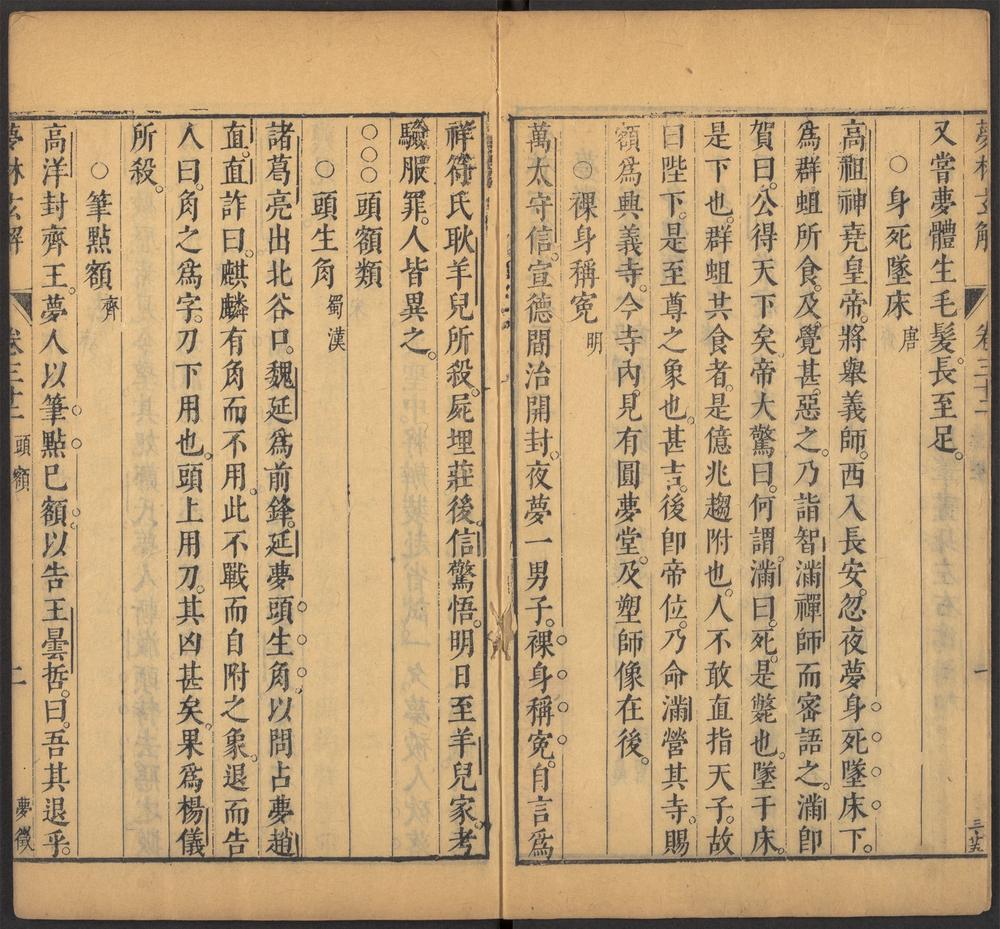 夢林玄解 卷三十二 一
又嘗夢體生毛髮。長至足。
○身死墜床 唐
高祖神堯皇帝。將舉義師。西入長安。忽夜夢身死墜床下。
爲群蛆所食。及覺甚惡之。乃詣智滿禪師而密語之。滿卽
賀曰。公得天下矣。帝大驚曰。何謂。滿曰。死。是斃也。墜于床。
是下也。群蛆共食者。是億兆趨附也。人不敢直指天子。故
曰陛下。是至尊之象也。甚吉。後卽帝位。乃命滿營其寺。賜
額爲興義寺。今寺內。見有圓夢堂。及塑師像在後。
○裸身稱寃 明
萬太守信。宣德間治開封。夜夢一男子。裸身稱寃。自言爲
祥符氏耿羊兒所殺。屍埋莊後。信驚悟。明日至羊兒家。考
驗服罪。人皆異之。
○○○頭額類
○頭生角 蜀漢
諸葛亮出北谷口。魏延爲前鋒。延夢頭生角。以問占夢趙
直。直詐曰。麒麟有角而不用。此不戰而自附之象。退而告
人曰。角之爲字。刀下用也。頭上用刀。其凶甚矣。果爲楊儀
所殺。
○筆點額 齊
高洋封齊王。夢人以筆點巳額。以告王曇哲。曰。吾其退乎。
夢林玄解 卷三十二 頭額 二 夢徵